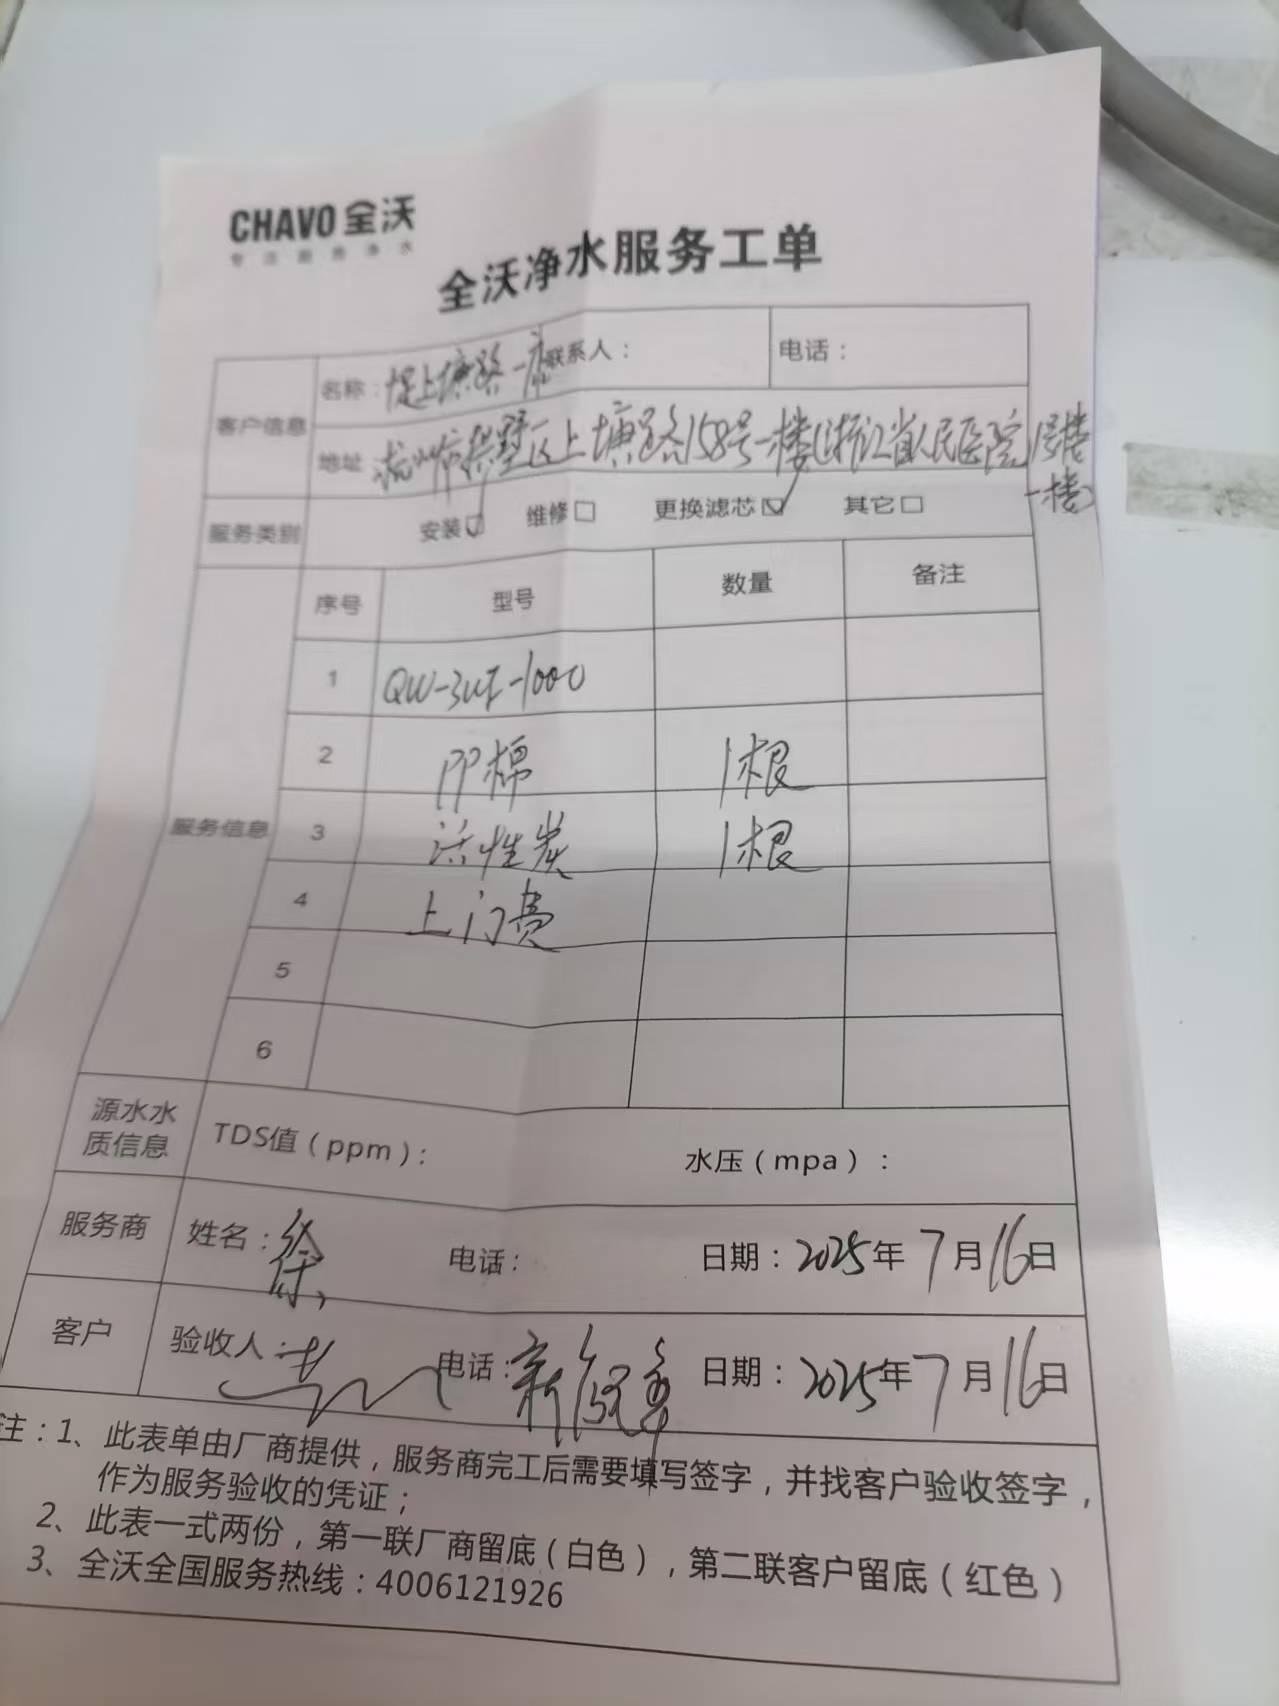 CHAVO 全沃
专注厨房净水
全沃净水服务工单
客户信息
名称：上塘路一店 联系人： 电话：
地址 杭州市拱墅区上塘路158号一楼(浙江省人民医院1号楼
一楼)
服务类别 安装 维修 更换滤芯 其它
服务信息 序号 型号 数量 备注
1 QW-3UF-1000
2 PP棉 1根
3 活性炭 1根
4 上门费
5
6
源水水质信息 TDS值（ppm）： 水压（mpa）：
服务商 姓名：徐 电话： 日期：2025年7月16日
客户 验收人： 电话： 日期：2025年7月16日
注：1、此表单由厂商提供，服务商完工后需要填写签字，并找客户验收签字，
作为服务验收的凭证；
2、此表一式两份，第一联厂商留底（白色），第二联客户留底（红色）
3、全沃全国服务热线：4006121926